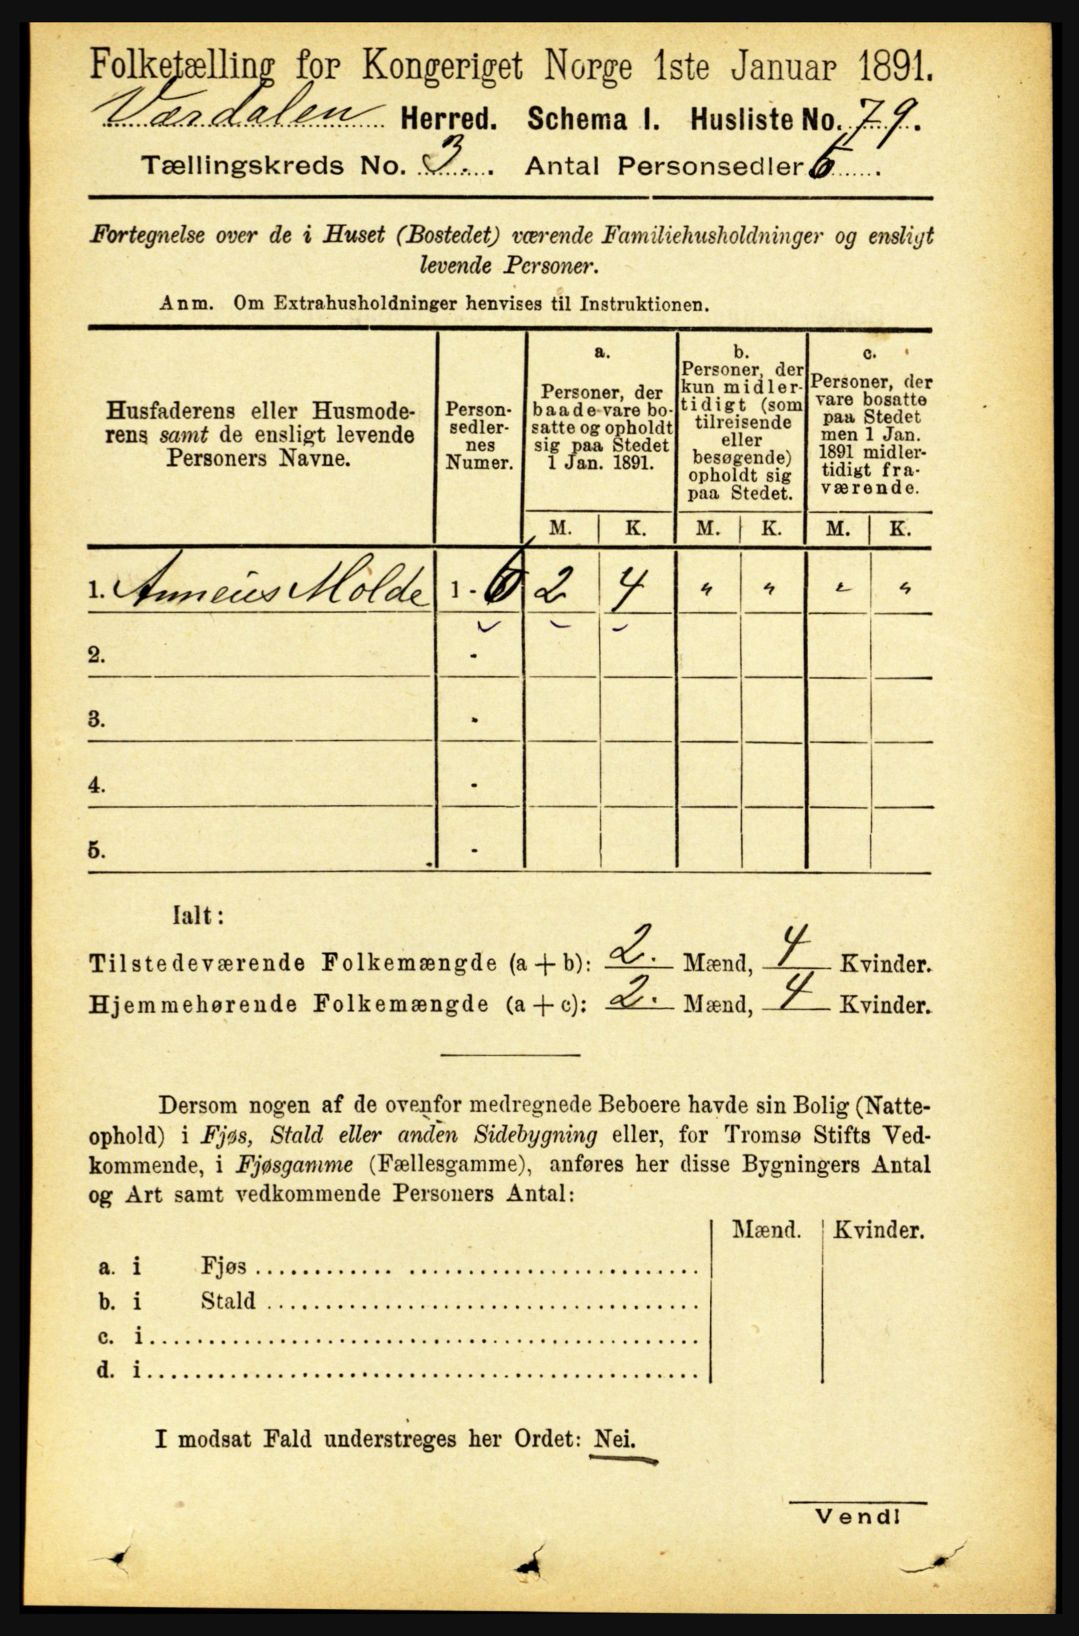 Folketælling for Kongeriget Norge 1ste Januar 1891.
Værdalen Herred. Schema I. Husliste No. 79.
Tællingskreds No. 3. Antal Personsedler 6.
Fortegnelse over de i Huset (Bostedet) værende Familiehusholdninger og ensligt
levende Personer.
Anm. Om Extrahusholdninger henvises til Instruktionen.
Husfaderens eller Husmode-
rens samt de ensligt levende
Personers Navne.
Person-
sedler-
nes
Numer.
a.
Personer, der
baade vare bo-
satte og opholdt
sig paa Stedet
1 Jan. 1891.
b.
Personer, der
kun midler-
tidigt (som
tilreisende
eller
besøgende)
opholdt sig
paa Stedet.
c.
Personer, der
vare bosatte
paa Stedet
men 1 Jan.
1891 midler-
tidigt fra-
værende.
M. K. M. K. M. K.
1. Anneus Molde 1 - 6 2 4 " " " "
2. -
3. -
4. -
5. -
Ialt:
Tilstedeværende Folkemængde (a + b): 2. Mænd, 4 Kvinder.
Hjemmehørende Folkemængde (a + c): 2. Mænd, 4 Kvinder.
Dersom nogen af de ovenfor medregnede Beboere havde sin Bolig (Natte-
ophold) i Fjøs, Stald eller anden Sidebygning eller, for Tromsø Stifts Ved-
kommende, i Fjøsgamme (Fællesgamme), anføres her disse Bygningers Antal
og Art samt vedkommende Personers Antal:
Mænd. Kvinder.
a. i Fjøs
b. i Stald
c. i
d. i
I modsat Fald understreges her Ordet: Nei.
Vend!